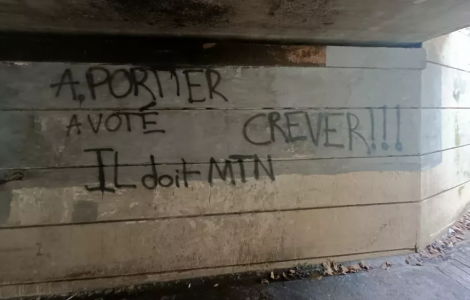 A. PORTIER
A VOTÉ
IL doit MTN
CREVER!!!